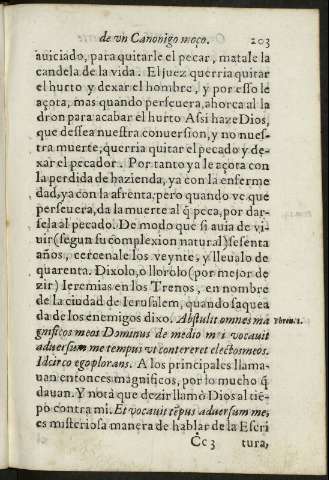 de vn Canonigo moço. 203
auiciado, para quitarle el pecar, matale la
candela de la vida. El juez querria quitar
el hurto y dexar el hombre, y por esso le
açota, mas quando perseuera, ahorca al la
dron para acabar el hurto Assi haze Dios,
que dessea nuestra conuersion, y no nues-
tra muerte, querria quitar el pecado y de-
xar el pecador. Por tanto ya le açota con
la perdida de hazienda, ya con la enferme
dad, ya con la afrenta, pero quando ve que
perseuera, da la muerte al q̃ peca, por dar-
sela al pecado. De modo que si auia de vi-
uir (segun su complexion natural) sesenta
años, cercenale los veynte, y lleualo de
quarenta. Dixolo, o llorolo (por mejor de
zir) Ieremias en los Trenos, en nombre
de la ciudad de Ierusalem, quando saquea
da de los enemigos dixo. Abstulit omnes ma
gnificos meos Dominus de medio mei vocauit
aduersum me tempus vt contereret electos meos.
Idcirco ego plorans. A los principales llama-
uan entonces magnificos, por lo mucho q̃
dauan. Y nota que dezir llamò Dios al tiẽ
po contra mi. Et vocauit tẽpus aduersum me,
es misteriosa manera de hablar de la Escri
Cc 3 tura,